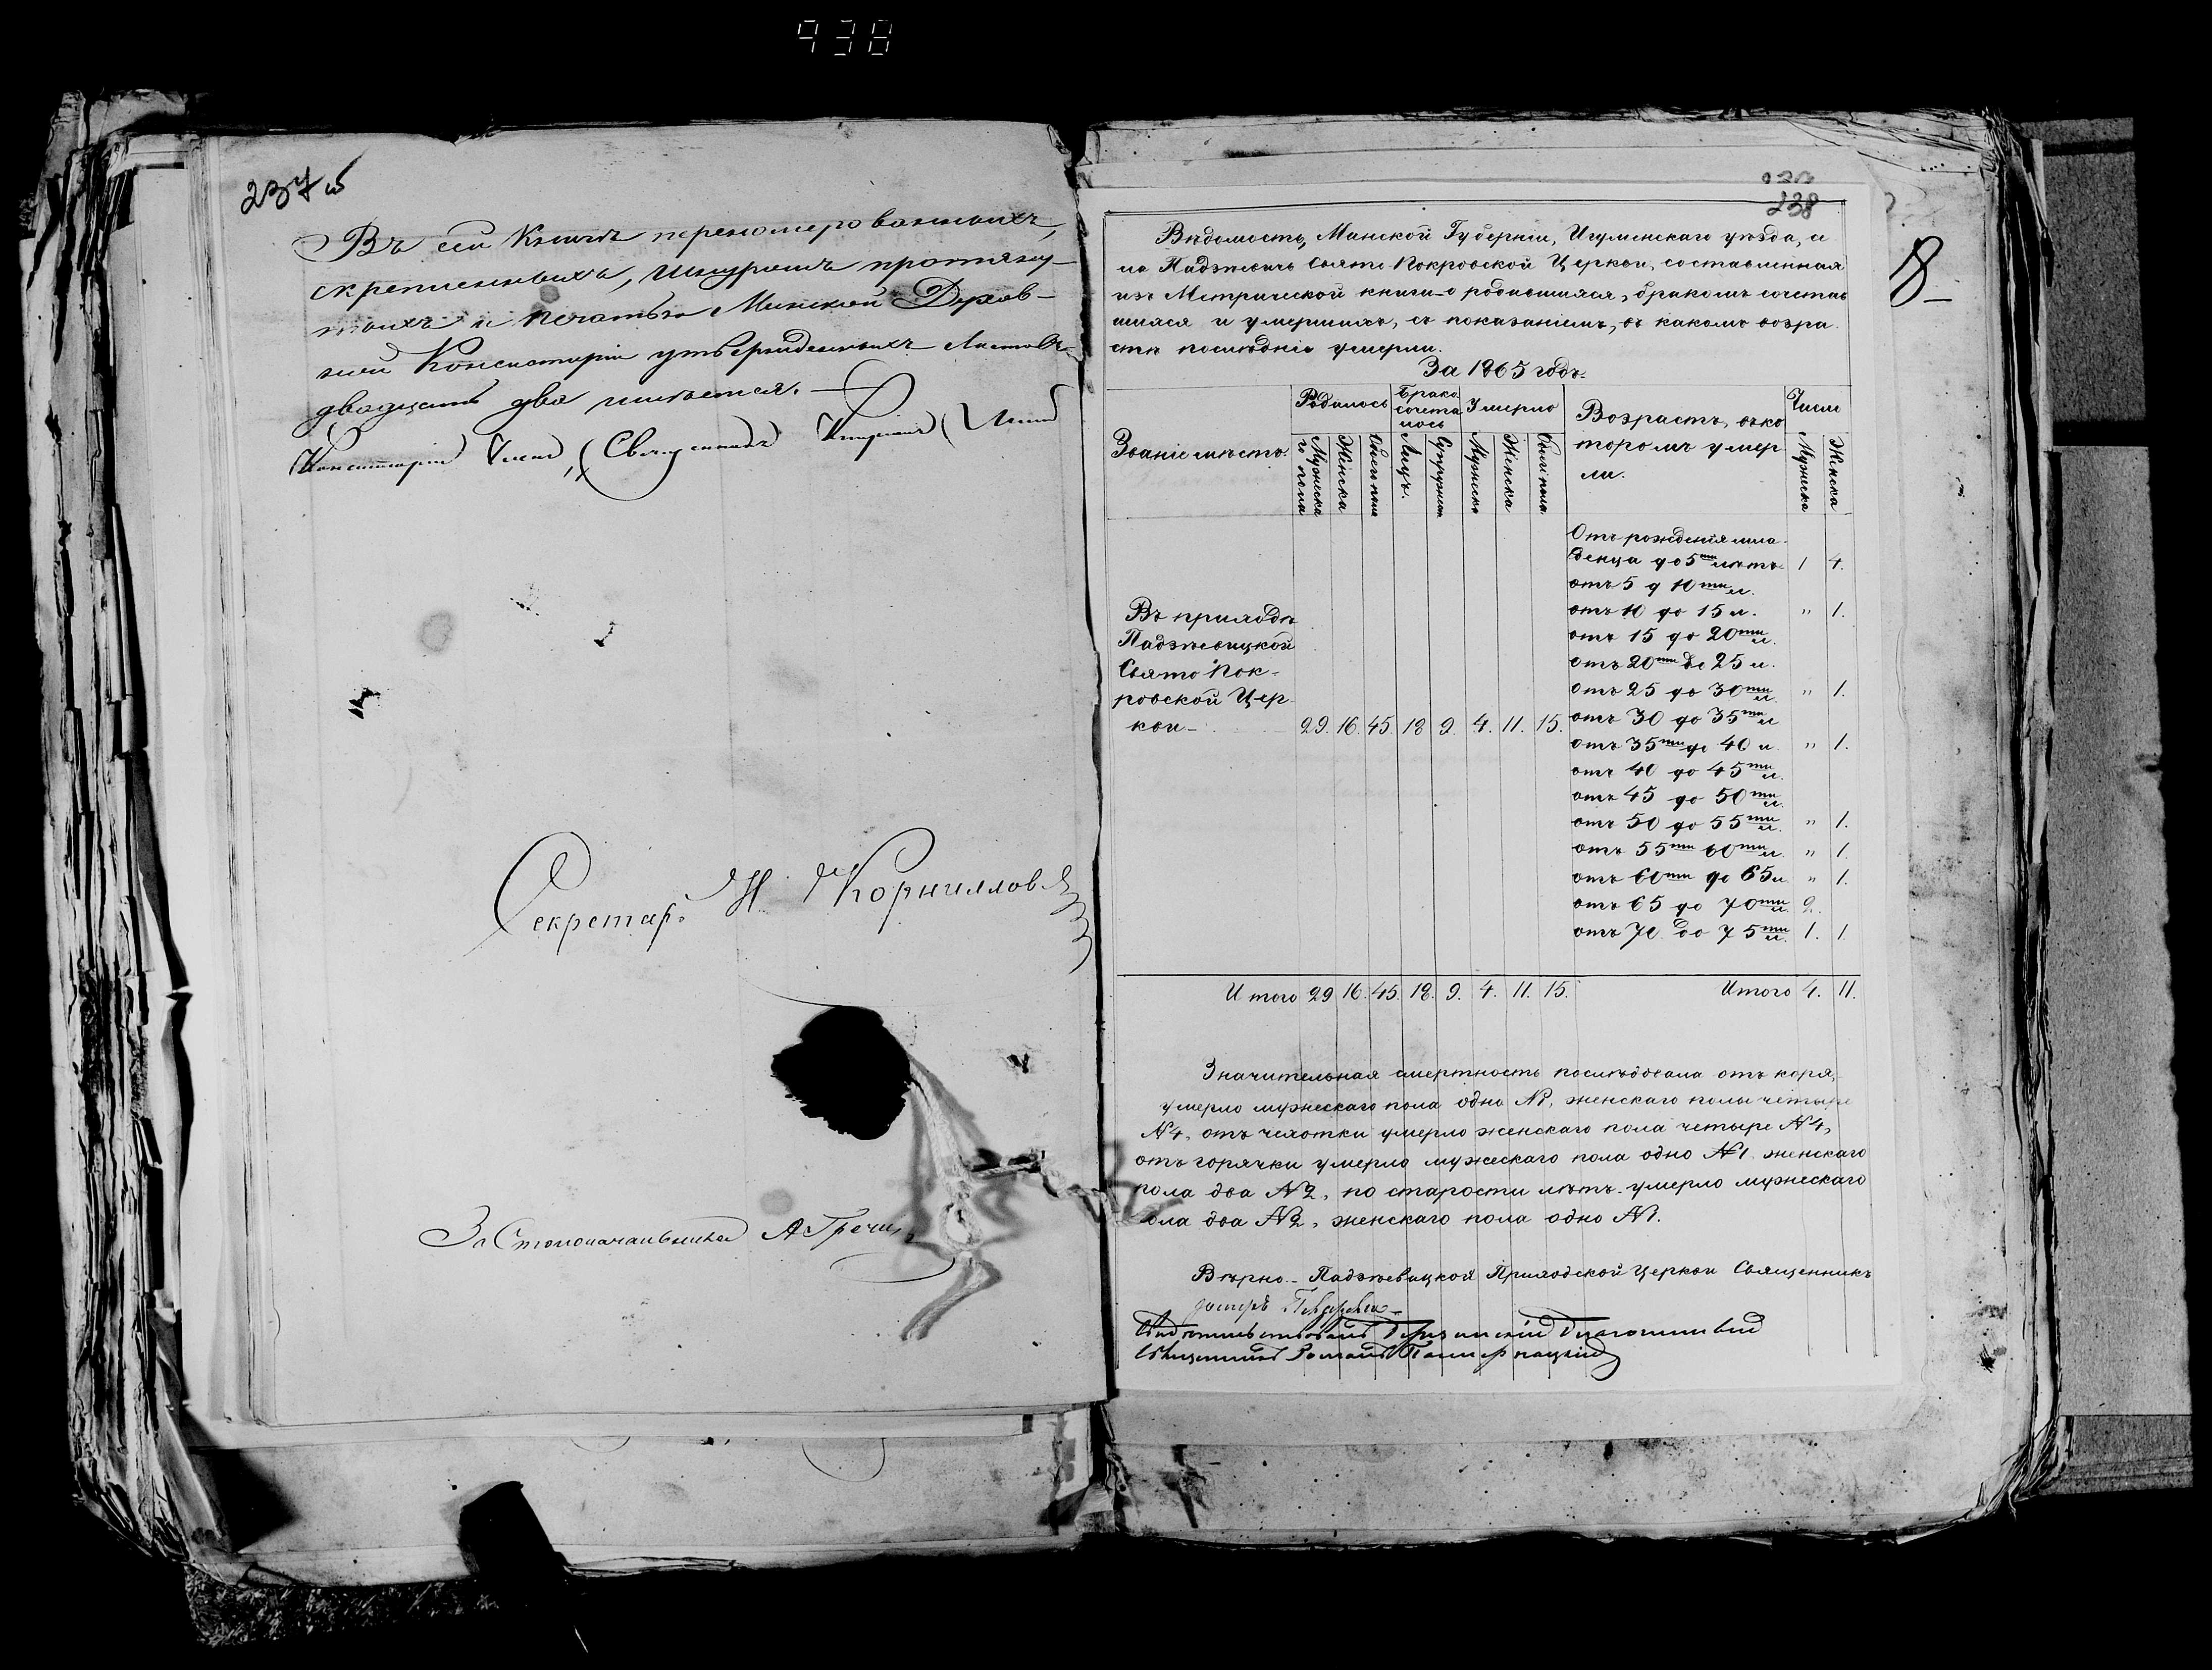 938
237 об
Въ сей Книгѣ переномерованныхъ,
скрепленныхъ, шнуромъ протяну-
тыхъ и печатью Минской Духов-
ной Консисторіи утвержденныхъ листовъ
двадцать два имѣется.
Консисторіи Членъ, Священникъ
Секретарь Н Корниллов
За Столоначальника А Гречи
238
8
Вѣдомость, Минской Губерніи, Игуменскаго уѣзда, се
ла Падзѣевичъ Свято Покровской Церкви, составленная
изъ Метрической книги о родившихся, бракомъ сочетав
шихся и умершихъ, съ показаніемъ, въ какомъ возра
стѣ послѣдніе умерли.
За 1865 годъ.
Званіе мѣстъ. Родилось Брако сочета лось Умерло Возрастъ, въ ко торомъ умер ли. Число
Мужеска го пола Женска Обоего пола Лицъ. Супружест Мужеска Женска Обоего пола Мужеска Женска
Отъ рожденія мла
денца до 5ти лѣтъ 1 4.
отъ 5 д 10ти л.
отъ 10 до 15 л. " 1.
отъ 15 до 20ти л.
отъ 20ти до 25 л.
отъ 25 до 30ти л " 1.
отъ 30 до 35ти л
отъ 35ти до 40 л. " 1.
отъ 40 до 45ти л.
отъ 45 до 50ти л.
отъ 50 до 55ти л. " 1.
отъ 55ти 60ти л. " 1.
отъ 60ти до 65 л " 1.
отъ 65 до 70ти л. 2.
отъ 70 до 75ти л. 1. 1
Въ приходѣ
Падзѣевицкой
Свято Пок-
ровской Цер
кви 29. 16. 45. 18 9. 4. 11. 15.
Итого 29 16. 45. 18. 9. 4. 11. 15. Итого 4. 11.
Значительная смертность послѣдовала отъ коря,
умерло мужескаго пола одно №1, женскаго полы четыре
№4, отъ чехотки умерло женскаго пола четыре №4,
отъ горячки умерло мужескаго пола одно №1 женскаго
пола два №2, по старости лѣтъ умерло мужескаго
ола два №2, женскаго пола одно №1.
Вѣрно. Падзѣевицкой Приходской Церкви Священникъ
Свидѣтельствовалъ Благочинный
Священникъ Романъ